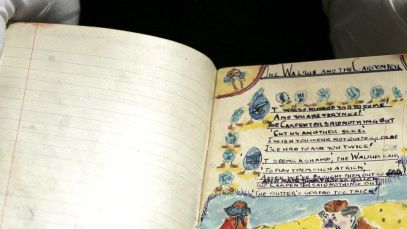 THE WALRUS AND THE CARPENTER
AND YOU ARE VERY NICE!
THE CARPENTER SAID NOTHING BUT
CUT US ANOTHER SLICE.
I WISH YOU WERE NOT QUITE SO DEAF
I'VE HAD TO ASK YOU TWICE!
IT SEEMS A SHAME, THE WALRUS SAID,
TO PLAY THEM SUCH A TRICK.
AFTER WE'VE BROUGHT THEM OUT SO
CARPENTER SAID NOTHING BUT
THE BUTTER'S SPREAD TOO THICK!